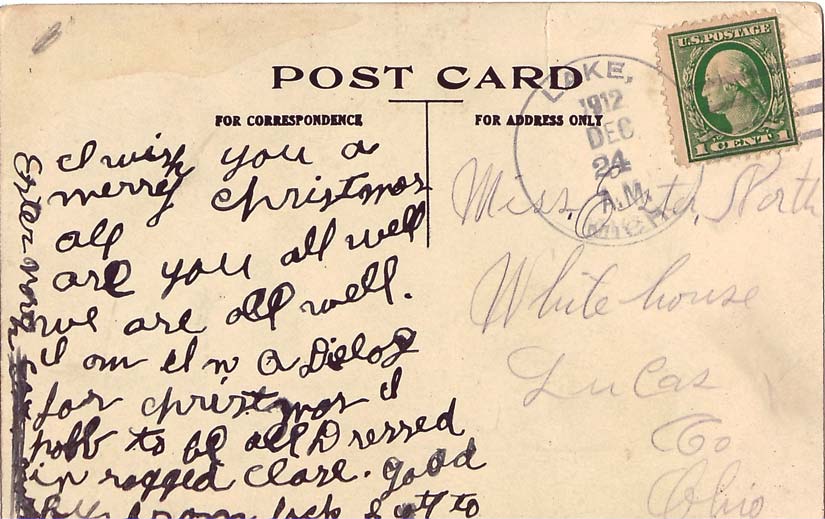 POST CARD
FOR CORRESPONDENCE
FOR ADDRESS ONLY
U.S. POSTAGE
1 CENT 1
LAKE,
1912
DEC
24
A.M.
MICH
I wish you a
merrey christmas
all
are you all well
we are all well.
I am In a Dielog
for christmas I
to be all Dressed
in ragged Clare. good
from
to
Miss, North
Whitehouse
Lucas
Co
Ohio